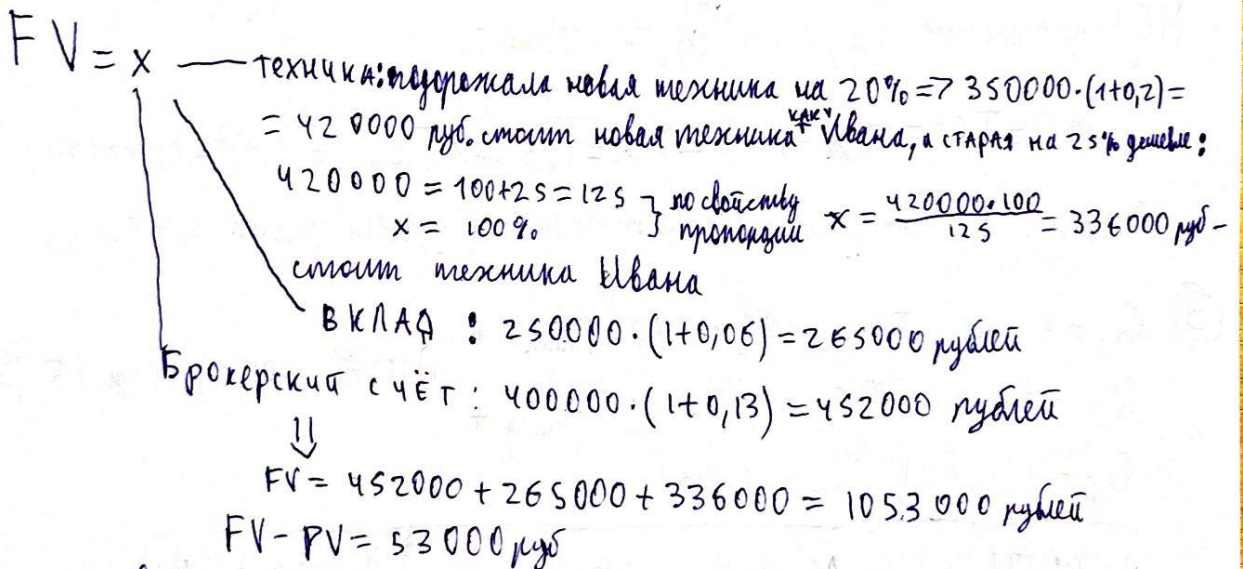 FV = x — техника: подорожала новая техника на 20% => 350000·(1+0,2)=
= 420000 руб. стоит новая техника как у Ивана, а СТАРАЯ на 25% дешевле:
420000 = 100+25 = 125 } по свойству пропорции x = 420000·100/125 = 336000 руб –
x = 100%
стоит техника Ивана
ВКЛАД : 250000·(1+0,06) = 265000 рублей
Брокерский счёт : 400000·(1+0,13) = 452000 рублей
⇓
FV = 452000 + 265000 + 336000 = 1053000 рублей
FV – PV = 53000 руб